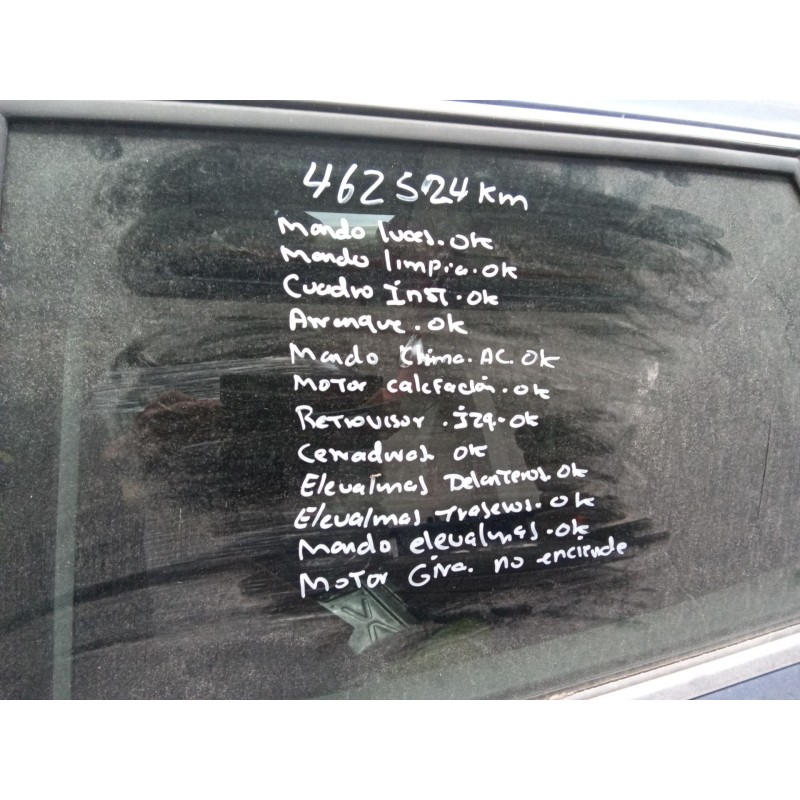 462524 Km
Mando luces. ok
Mando limpia. ok
Cuadro inst. ok
Arranque. ok
Mando Clima. AC. OK
Motor calefacion. ok
Retrovisor. izq. ok
Cerraduras ok
Elevalunas Delanteros. ok
Elevalunas traseros. ok
Mando elevalunas. ok
Motor Gira. no enciende